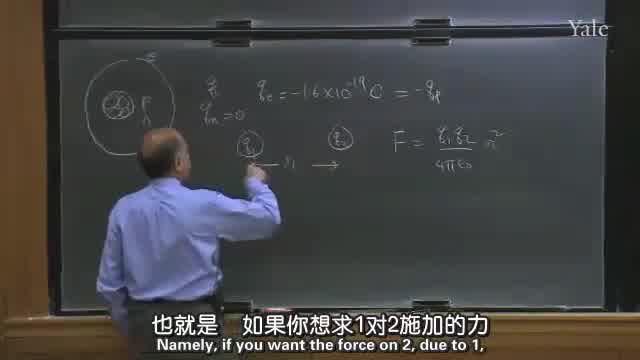 Yale
e
q qₑ = -1.6×10⁻¹⁹ C = -qₚ
qₙ = 0
q₁ q₂ F = q₁q₂ / 4πε₀ r²
r
也就是 如果你想求1对2施加的力
Namely, if you want the force on 2, due to 1,